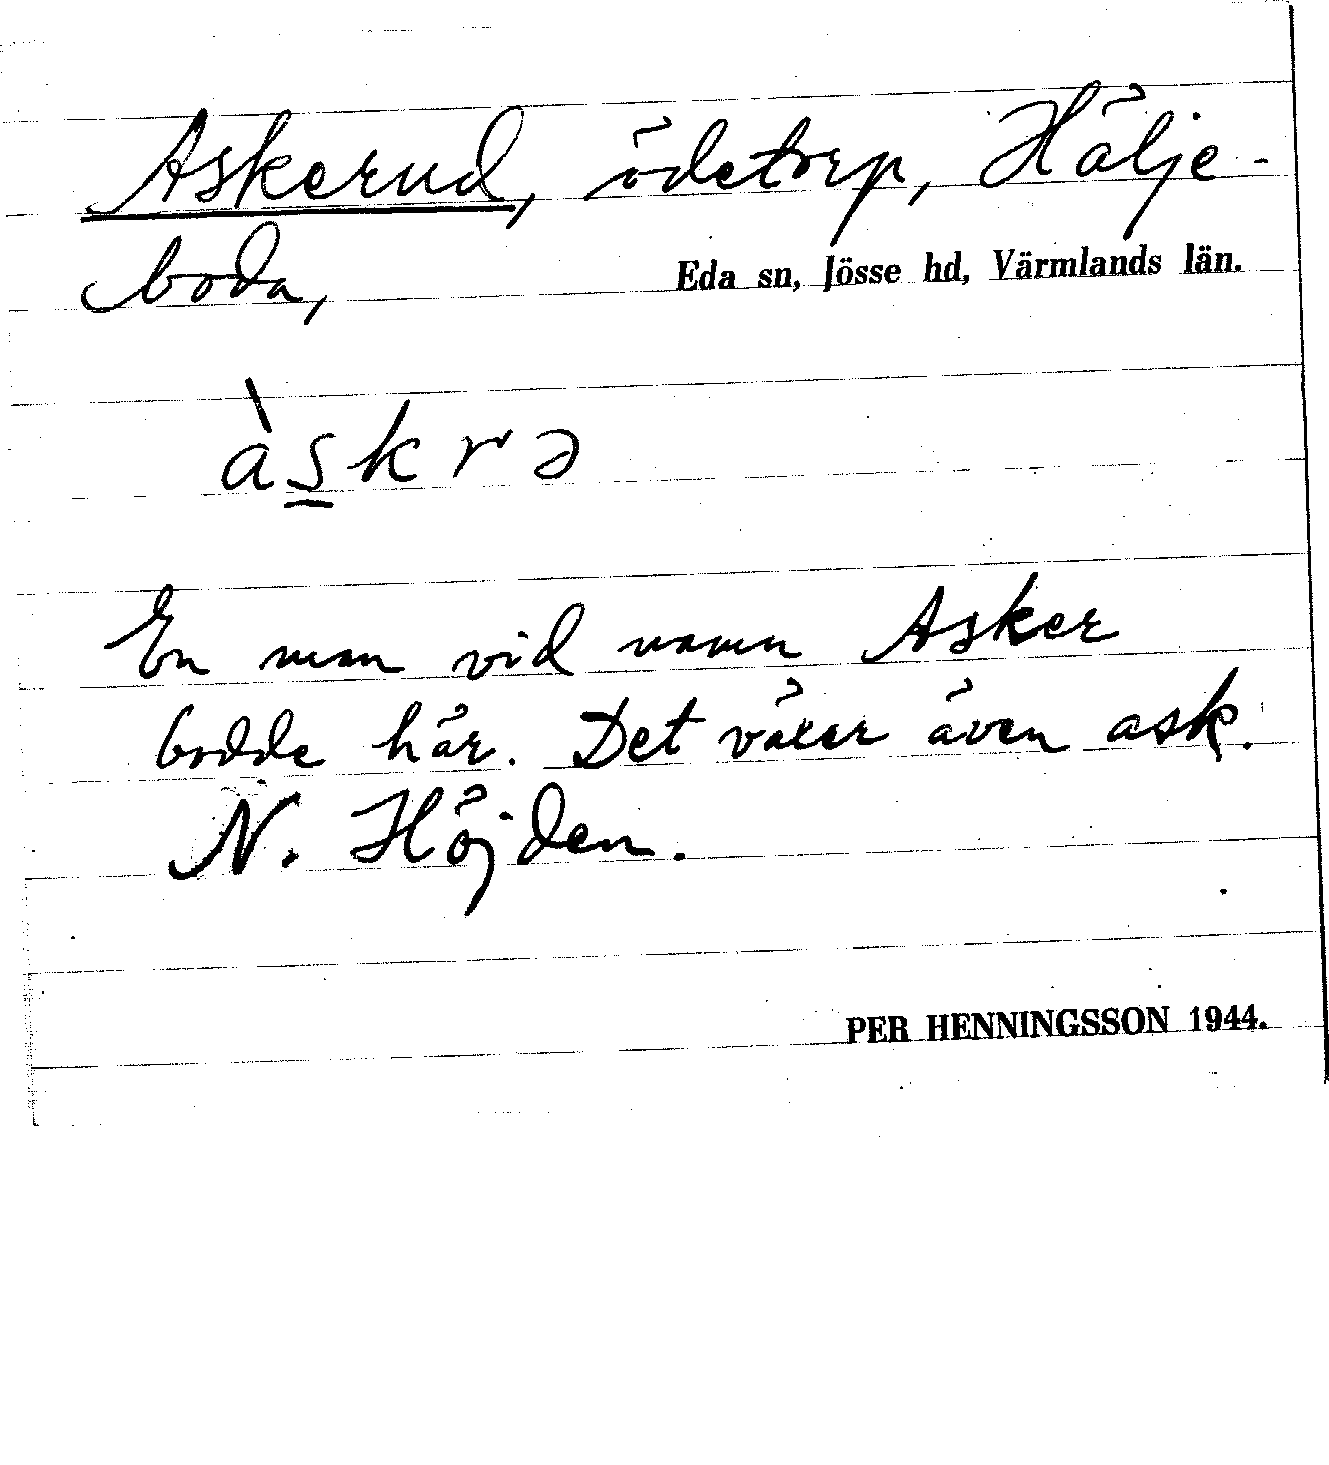 Askerud, ödetorp, Hälje-
boda,
Eda sn, Jösse hd, Värmlands län.
àskrə
En man vid namn Asker
bodde här. Det växer även ask.
N. Höjden.
PER HENNINGSSON 1944.